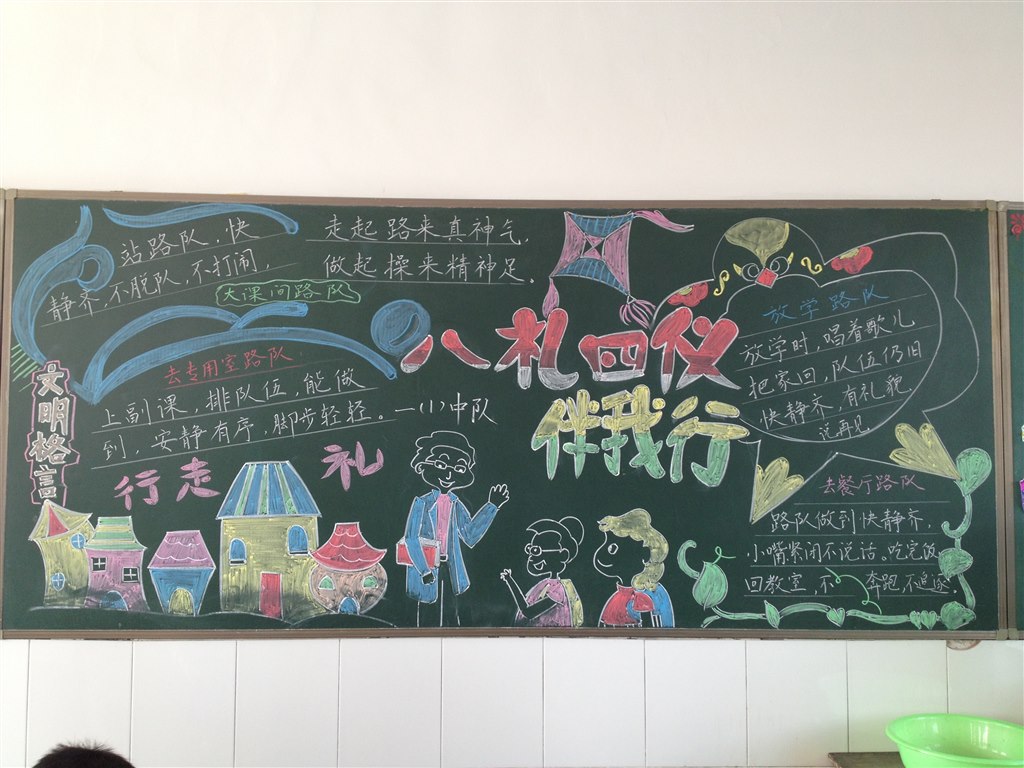 站路队，快
静齐，不脱队，不打闹，
走起路来真神气，
做起操来精神足。
大课间路队
八礼四仪
伴我行
文明格言
去专用室路队
上副课，排队伍，能做
到，安静有序，脚步轻轻。
一(1)中队
行走礼
放学路队
放学时，唱着歌儿
把家回，队伍仍旧
快静齐，有礼貌
说再见
去餐厅路队
路队做到快静齐，
小嘴紧闭不说话，吃完饭
回教室，不奔跑，不追逐。